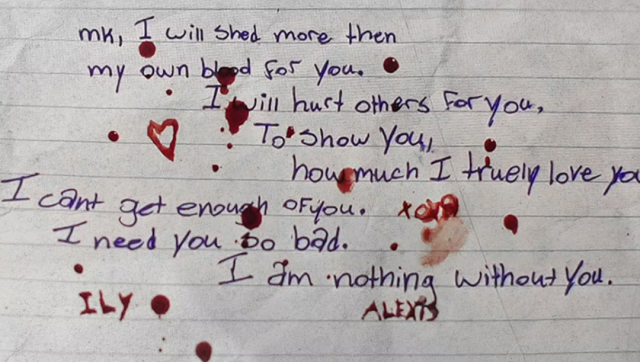 mk, I will shed more then
my own blood for you.
I will hurt others for you,
To show you,
how much I truely love yo
I cant get enough of you. xoxo
I need you so bad.
I am nothing without you.
ILY
ALEXIS